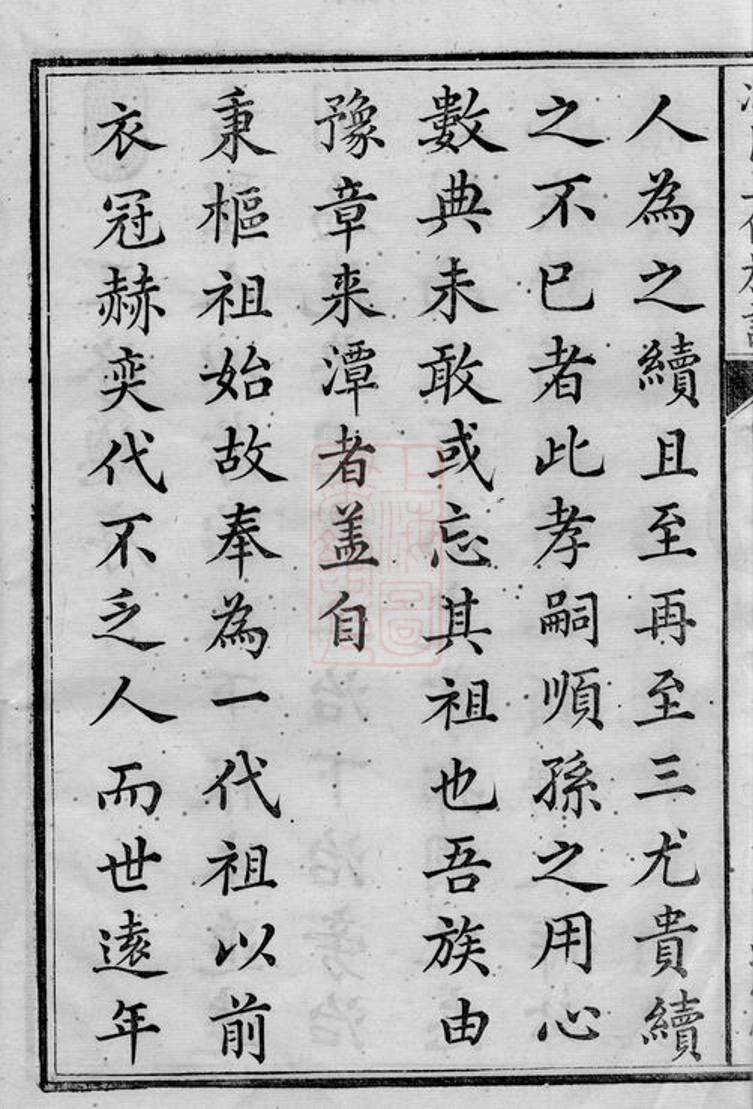 人為之續且至再至三尤貴續
之不已者此孝嗣順孫之用心
數典未敢或忘其祖也吾族由
豫章来潭者盖自
秉樞祖始故奉為一代祖以前
衣冠赫奕代不乏人而世遠年